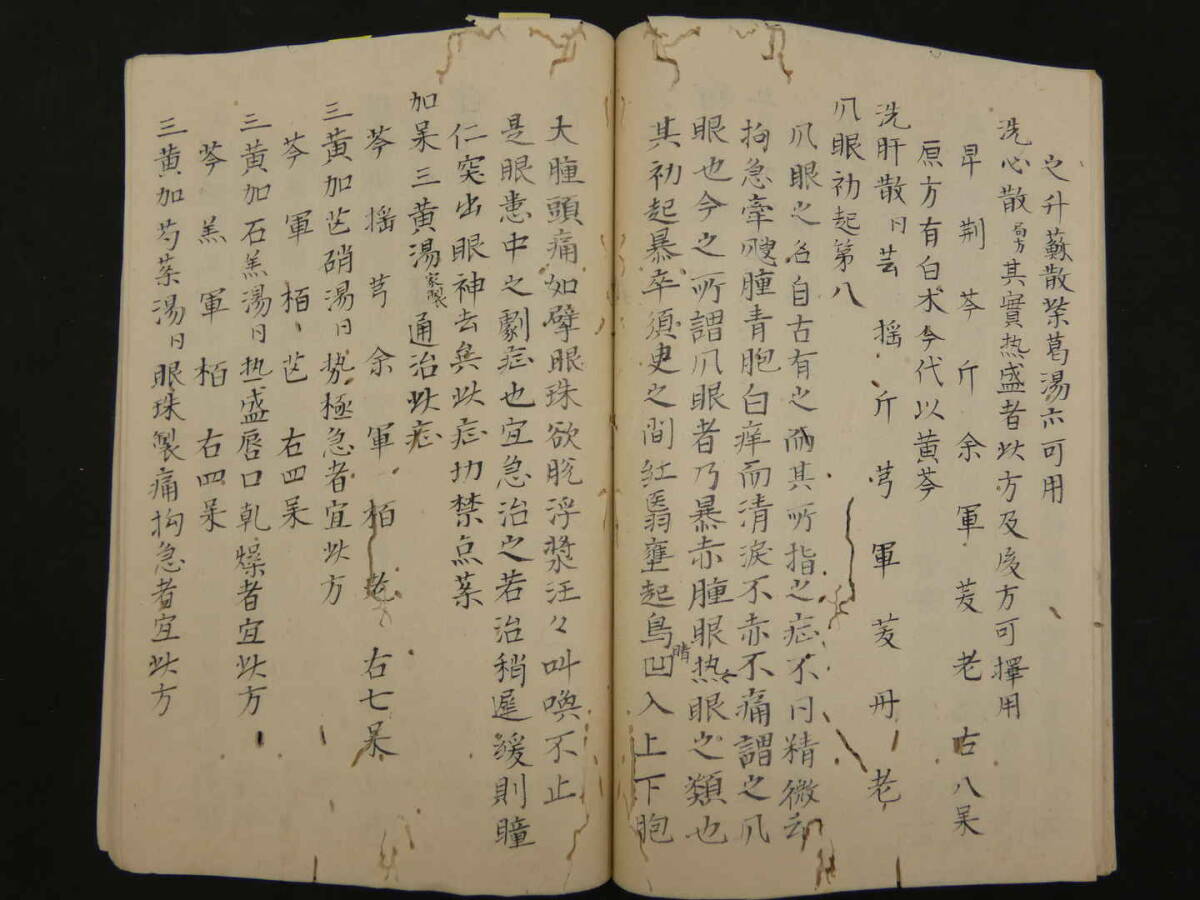 之升蘇散柴葛湯亦可用
洗心散局方其實热盛者此方及後方可擇用
早 荆 芩 斤 余 軍 芰 老 右八呆
原方有白朮今代以黄芩
洗肝散日芸 揺 斤 芎 軍 芰 丹 老
爪眼初起第八
爪眼之名自古有之而其所指之症不同精微云
拘急牽颼腫青胞白痒而清淚不赤不痛謂之爪
眼也今之所謂爪眼者乃暴赤腫眼热眼之類也
其初起暴卒須臾之間紅翳壅起烏睛凹入上下胞
大腫頭痛如擘眼珠欲脱浮漿汪々叫喚不止
是眼患中之劇症也宜急治之若治稍遲緩則瞳
仁突出眼神去矣此症切禁点薬
加呆三黄湯家製通治此症
芩 揺 芎 余 軍 栢 老 右七呆
三黄加芒硝湯日势極急者宜此方
芩 軍 栢 芒 右四呆
三黄加石羔湯日热盛唇口乾燥者宜此方
芩 羔 軍 栢 右四呆
三黄加芍薬湯日眼珠製痛拘急者宜此方